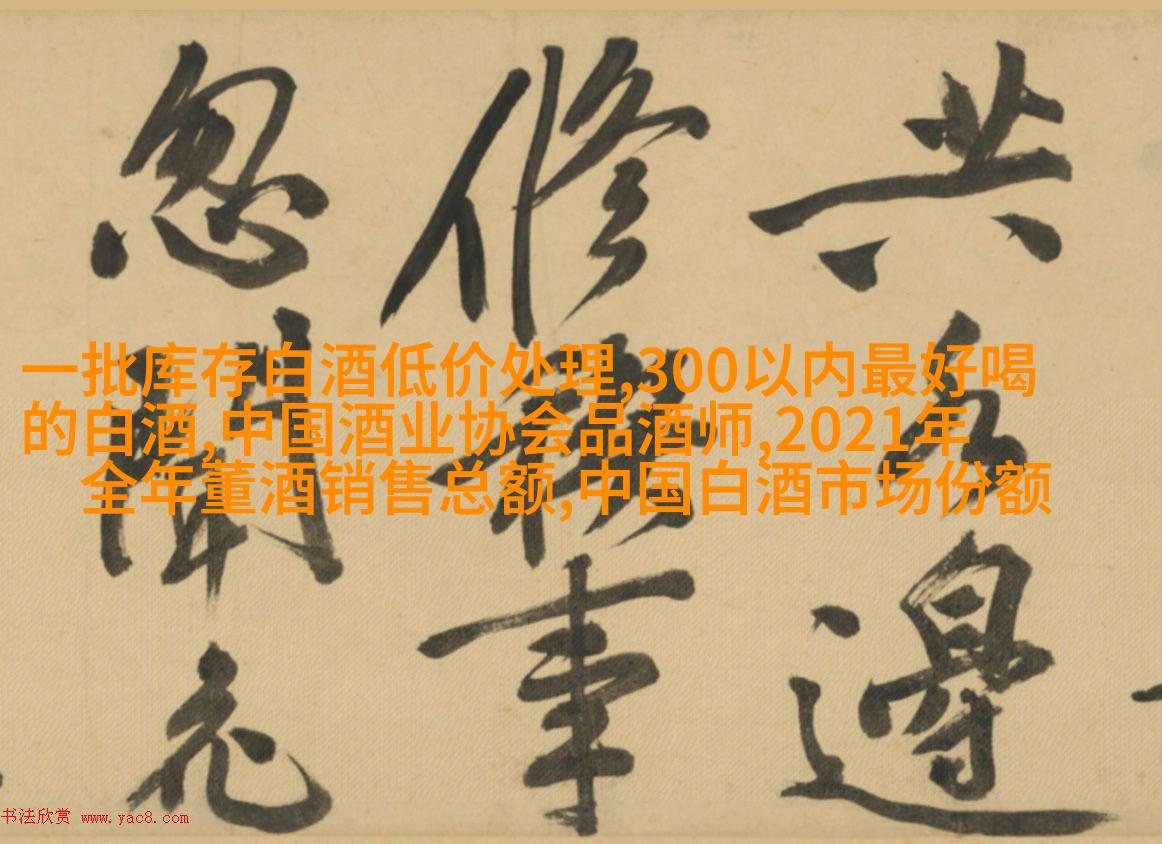 一批库存白酒低价处理,300以内最好喝
的白酒,中国酒业协会品酒师,2021年
全年董酒销售总额,中国白酒市场份额
共為邊
修事
忽聞
书法欣赏 www.yac8.com